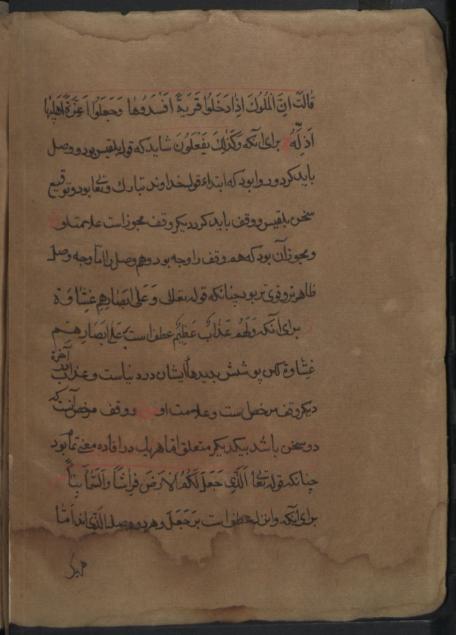 قالت ان الملوك اذا دخلوا قرية افسدوها وجعلوا اعزة اهلها
اذلة برای آنکه وکذلک یفعلون شاید که قول بلقیس بود و وصل
باید کرد و روا بود که ابتداء قول خداوند تبارک و تعا بود و توقیع
سخن بلقیس و وقف باید کرد دیگر وقف مجوز است علامتاو
و مجوز آن بود که هم وقف را وجه بود و هم وصل را اما وجه وصل
ظاهرتر و قوی تر بود چنانکه قوله تعالی وعلی ابصارهم غشاوة
برای آنکه ولهم عذاب عظیم عطف است بر علی ابصارهم
غشاوة کاین پوشش بدیدهاء ایشان در دنیاست و عذاب آخرة
دیگر وقف مرخص است و علامت او و وقف مرخص آنست که
دو سخن باشد بیکدیگر متعلق اما هر یک در افاده معنی تما بود
چنانکه قوله تعا الذی جعل لکم الارض فراشا والسماء بناء
برای آنکه وانزل عطف است بر جعل و هر دو صله الذی اند اما
هر یک